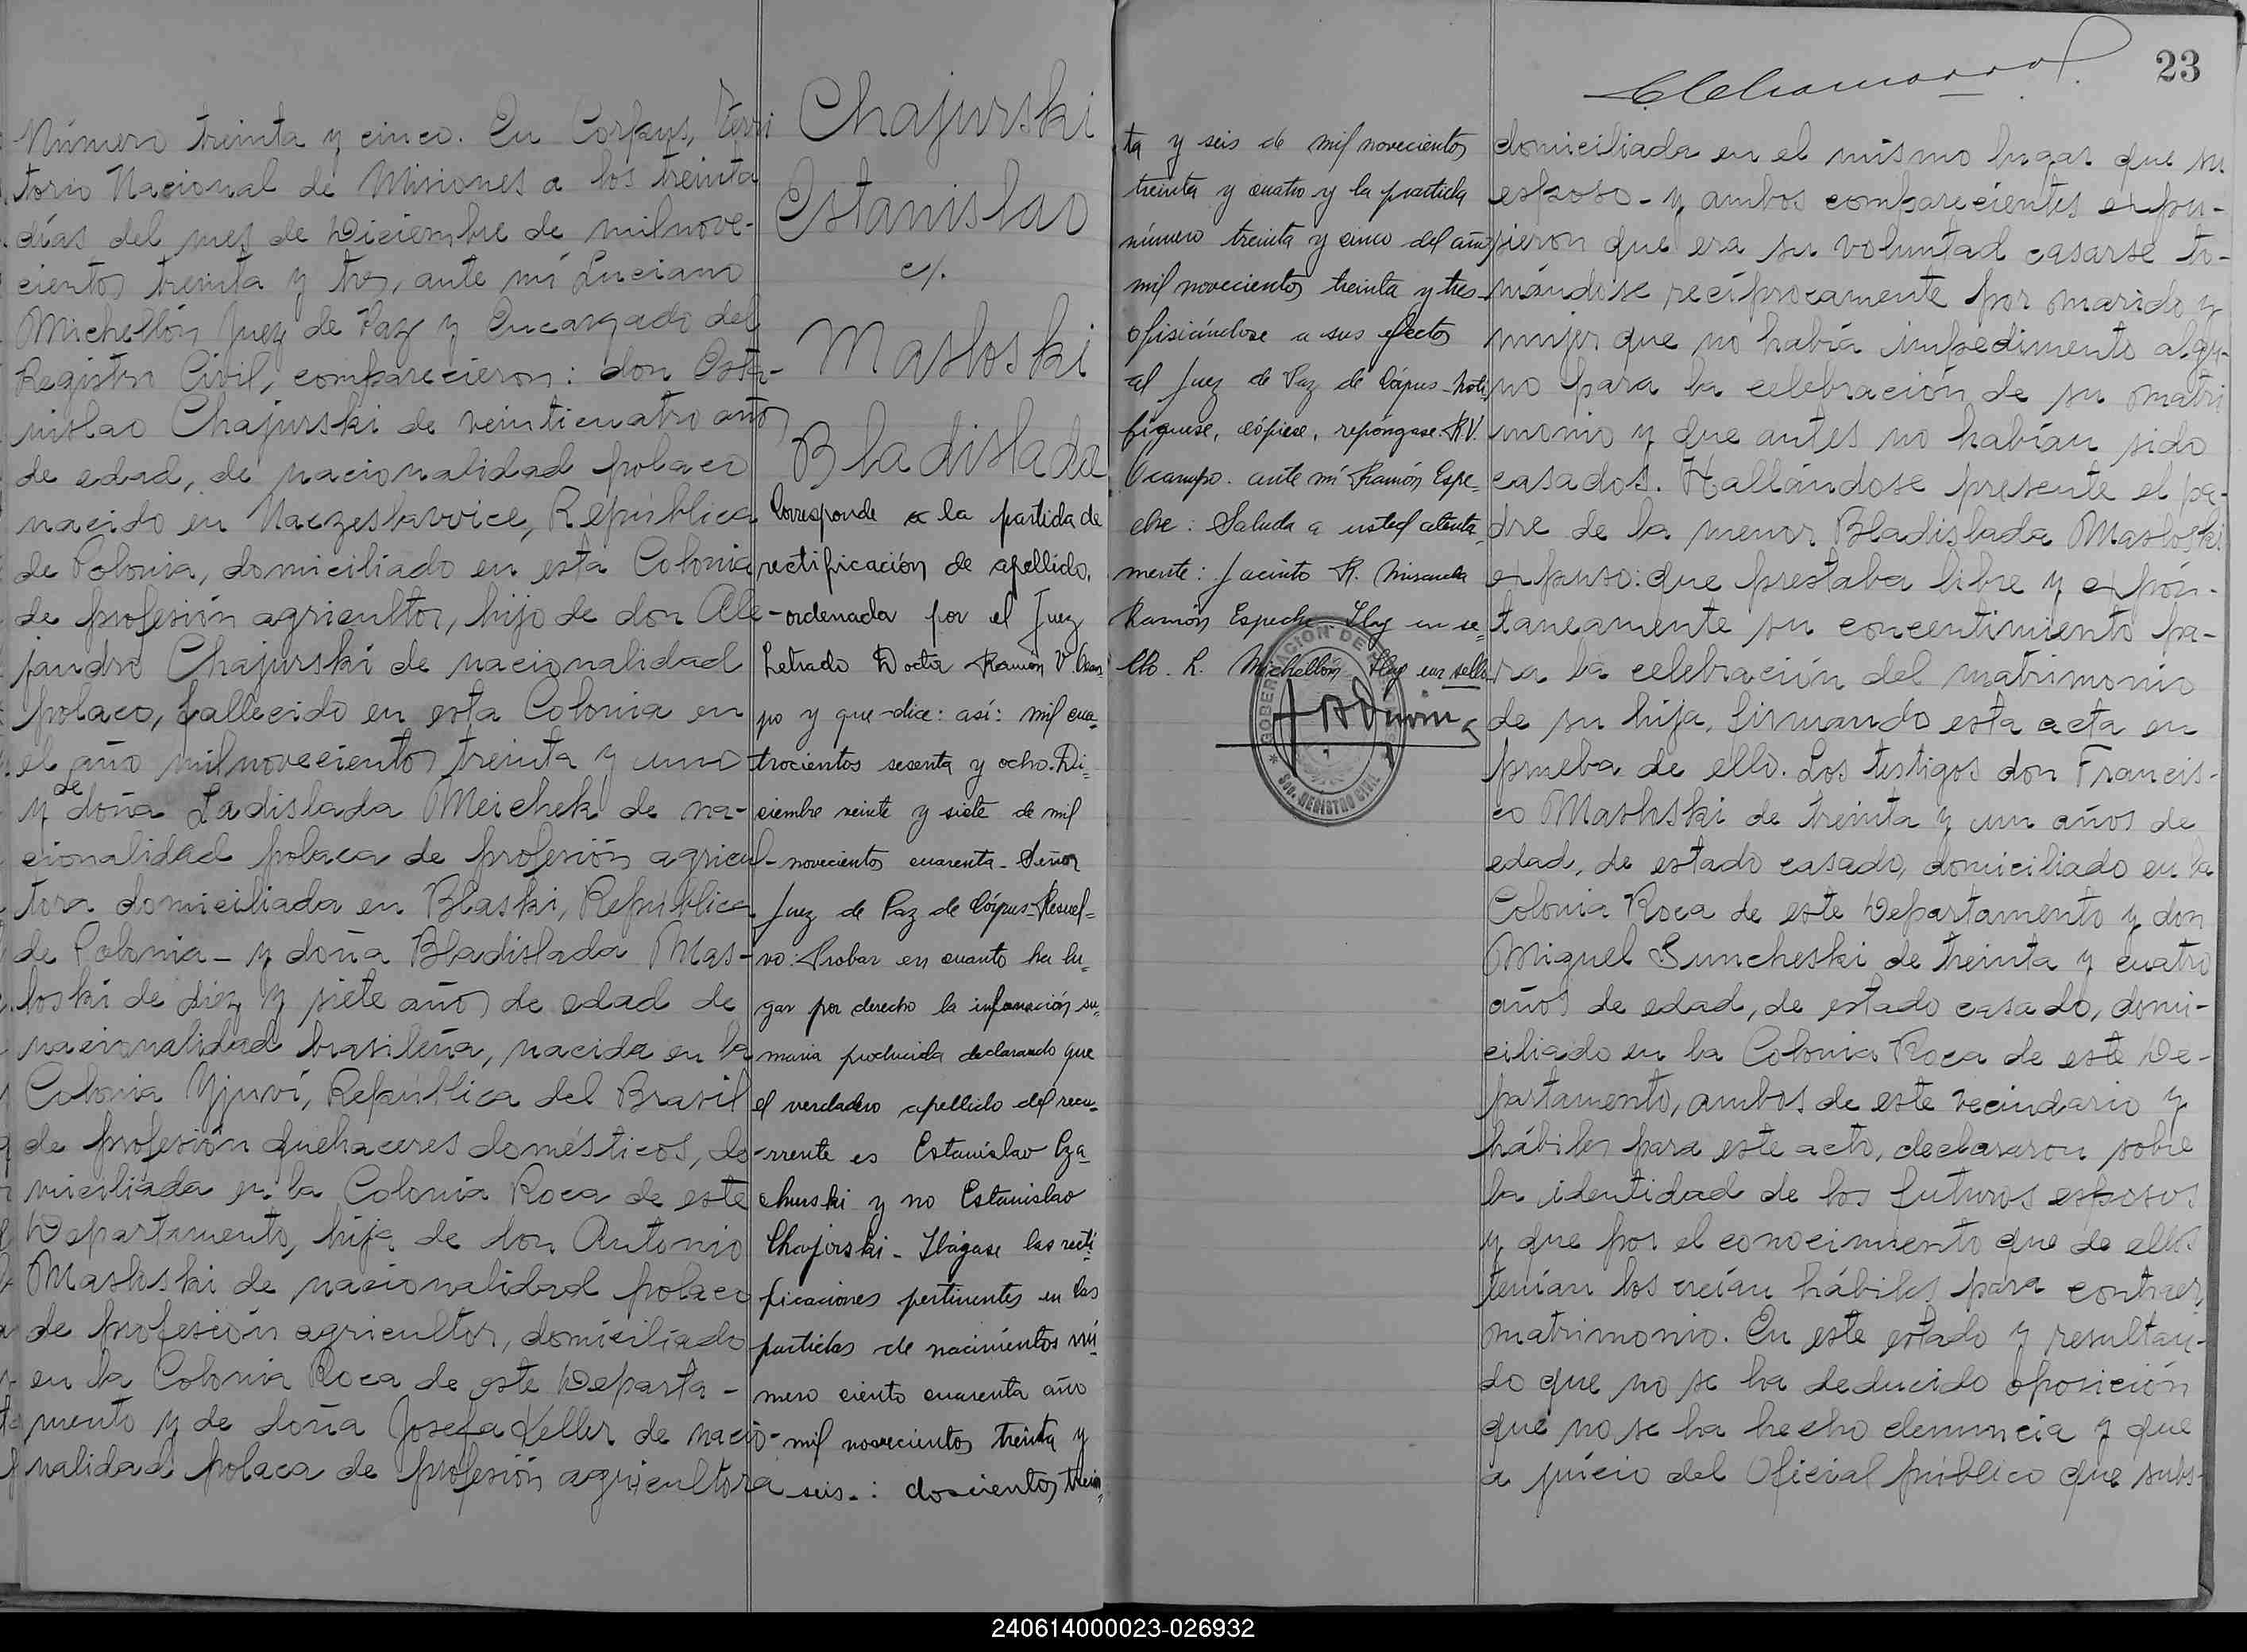 Número treinta y cinco. En Corpus, Terri
torio Nacional de Misiones a los treinta
días del mes de Diciembre de milnove-
cientos treinta y tres, ante mí Luciano
Michellón Juez de Paz y Encargado del
Registro Civil, comparecieron: don Esta-
nislao Chajurski de veinticuatro años
de edad, de nacionalidad polaco
nacido en Naczeslavvice, República
de Polonia, domiciliado en esta Colonia
de profesión agricultor, hijo de don Ale-
jandro Chajurski de nacionalidad
polaco, fallecido en esta Colonia en
el año milnovecientos treinta y uno
y de doña Ladislada Meichek de na-
cionalidad polaca de profesión agricul-
tora domiciliada en Blaski, República
de Polonia - y doña Bladislada Mas-
loski de diez y siete años de edad de
nacionalidad brasileña, nacida en la
Colonia Yjuví, República del Brasil
de profesión quehaceres domésticos, do-
miciliada en la Colonia Roca de este
Departamento, hija de don Antonio
Masloski de nacionalidad polaco
de profesión agricultor, domiciliado
en la Colonia Roca de este Departa-
mento y de doña Josefa Keller de nacio-
nalidad polaca de profesión agricultora
Chajurski
Estanislao
c/.
Masloski
Bladislada
Corresponde a la partida de
rectificación de apellido,
ordenada por el Juez
Letrado Doctor Ramón V. Ocam-
po y que dice: así: mil cua-
trocientos sesenta y ocho. Di-
ciembre veinte y siete de mil
novecientos cuarenta. Señor
Juez de Paz de Córpus. Resuel-
vo: Probar en cuanto ha lu-
gar por derecho la información su-
maria producida declarando que
el verdadero apellido del recu-
rrente es Estanislao Cza-
churski y no Estanislao
Chajurski - Hágase las recti
ficaciones pertinentes en las
partidas de nacimientos nú-
mero ciento cuarenta año
mil novecientos treinta y
seis.: doscientos trein-
ta y seis de mil novecientos
treinta y cuatro y la partida
número treinta y cinco del año
mil novecientos treinta y tres
ofisiándose a sus efectos
al Juez de Paz de Córpus - noti
fíquese, cópiese, repóngase. R.V.
Ocampo. ante mí Ramón Espe-
che: Saluda a usted atenta-
mente: Jacinto R. Miranda
Ramón Espeche Hay un se-
llo. L. Michellón Hay un sello
GOBERNACION DE
SUC. REGISTRO CIVIL
23
domiciliada en el mismo lugar que su
esposo - y ambos comparecientes expu-
sieron que era su voluntad casarse to-
mándose recíprocamente por marido y
mujer que no había impedimento algu-
no para la celebración de su matri
monio y que antes no habían sido
casados. Hallándose presente el pa-
dre de la menor Bladislada Masloski
expuso: que prestaba libre y expón-
taneamente su concentimiento pa-
ra la celebración del matrimonio
de su hija, firmando esta acta en
prueba de ello. Los testigos don Francis-
co Masloski de treinta y un años de
edad, de estado casado, domiciliado en la
Colonia Roca de este Departamento y don
Miguel Suncheski de treinta y cuatro
años de edad, de estado casado, domi-
ciliado en la Colonia Roca de este De-
partamento, ambos de este vecindario y
hábiles para este acto, declararon sobre
la identidad de los futuros esposos
y que por el conocimiento que de ellos
tenían los creían hábiles para contraer
matrimonio. En este estado y resultan-
do que no se ha deducido oposición
que no se ha hecho denuncia y que
a juicio del Oficial público que subs-
240614000023-026932